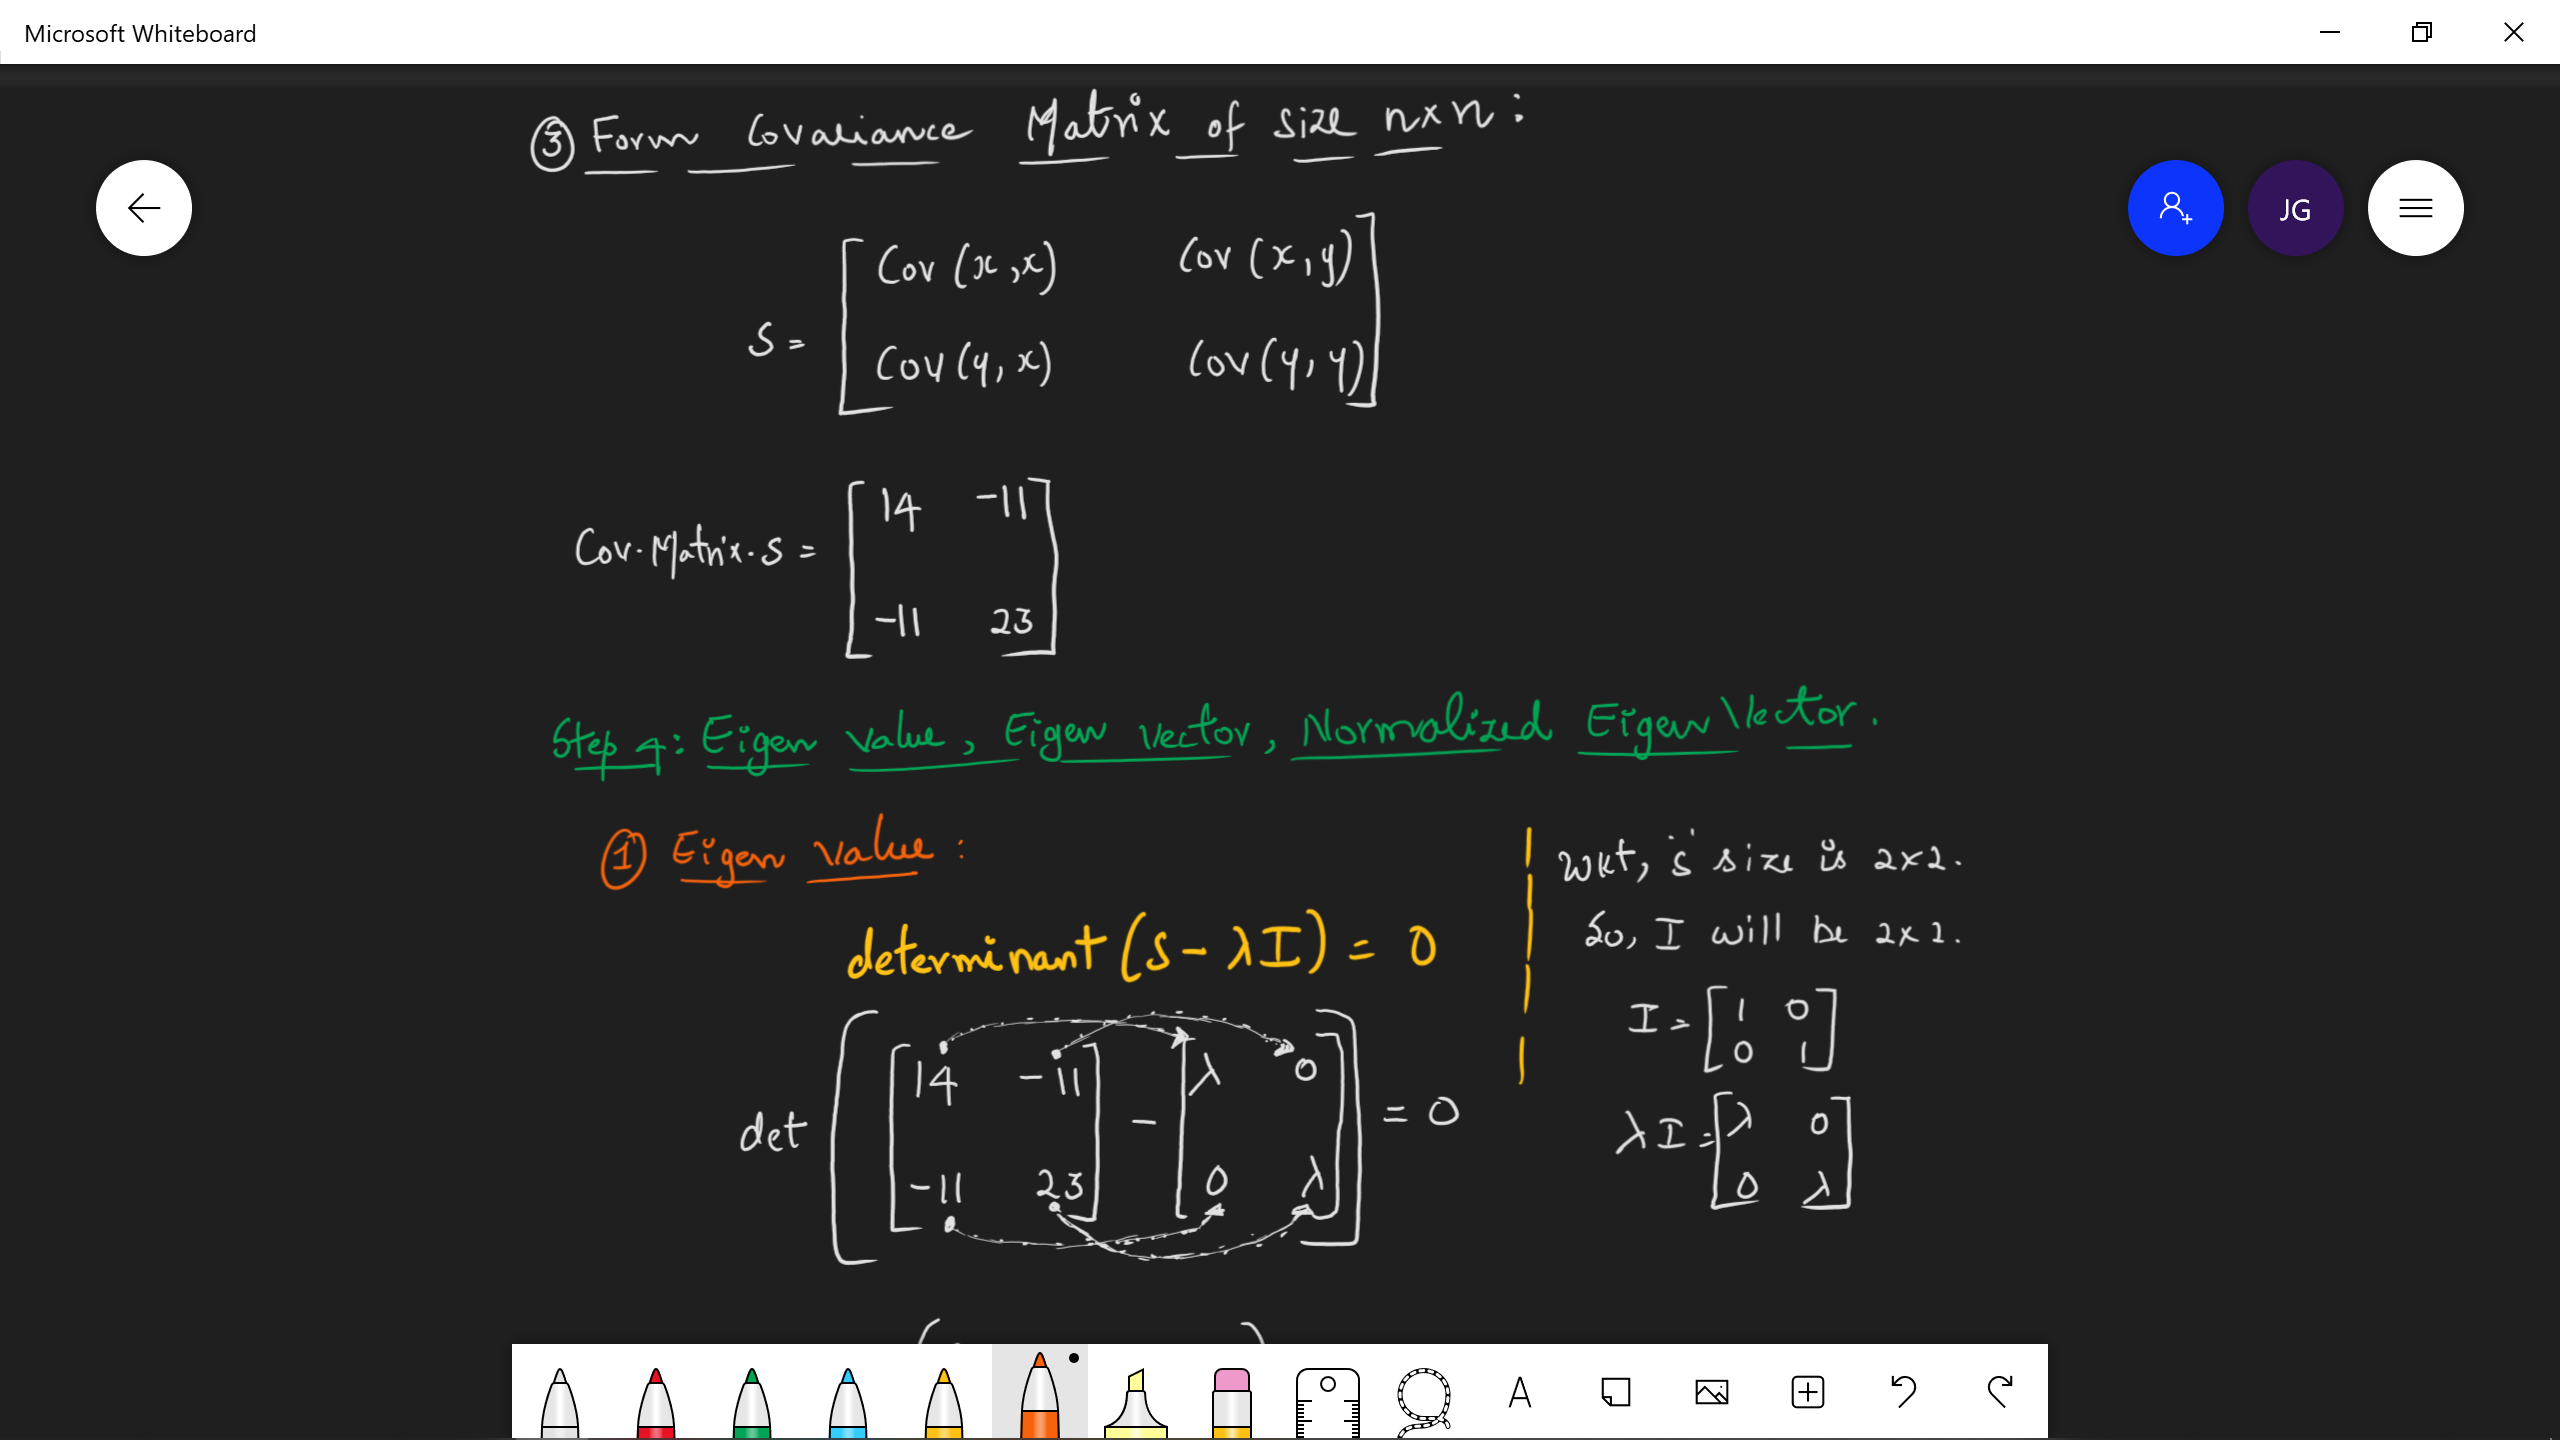 Microsoft Whiteboard
③ Form Covariance Matrix of size n×n:
JG
S = [ Cov (x,x) Cov (x,y)
Cov (y,x) Cov (y,y) ]
Cov. Matrix. S = [ 14 -11
-11 23 ]
Step 4: Eigen value, Eigen vector, Normalized Eigen Vector.
① Eigen value:
determinant (S - λI) = 0
det ( [ 14 -11
-11 23 ] - [ λ 0
0 λ ] ) = 0
WKT, 'S' size is 2×2.
So, I will be 2×2.
I = [ 1 0
0 1 ]
λI = [ λ 0
0 λ ]